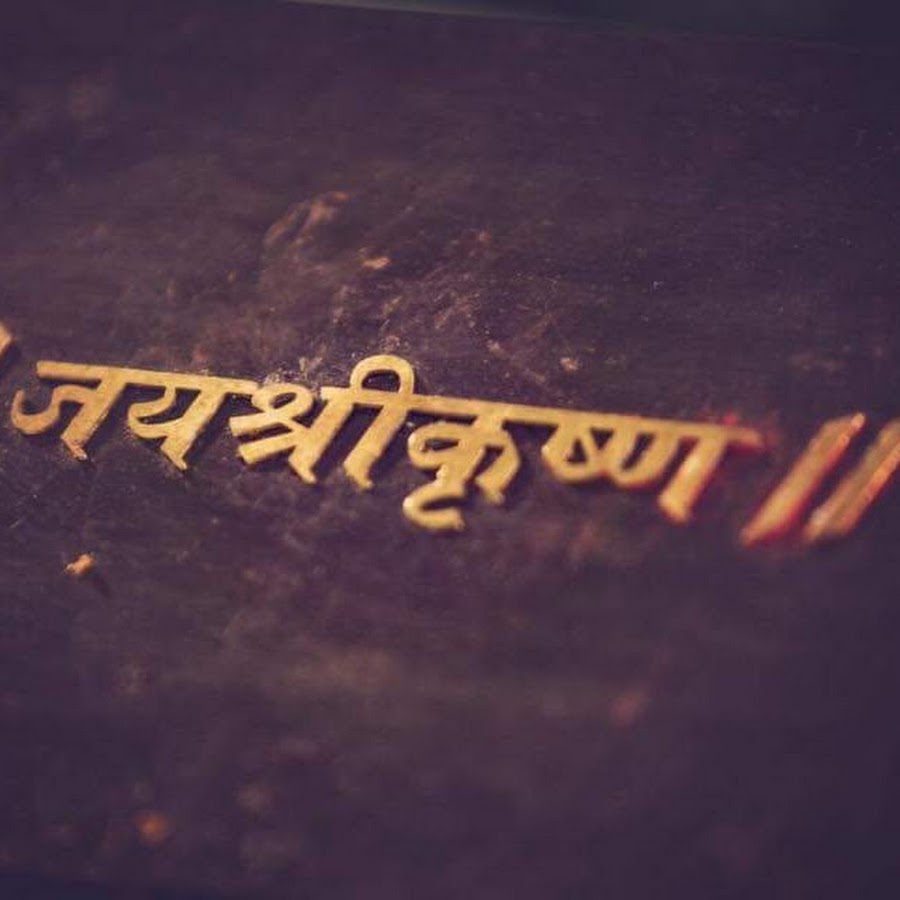 जयश्रीकृष्ण ॥